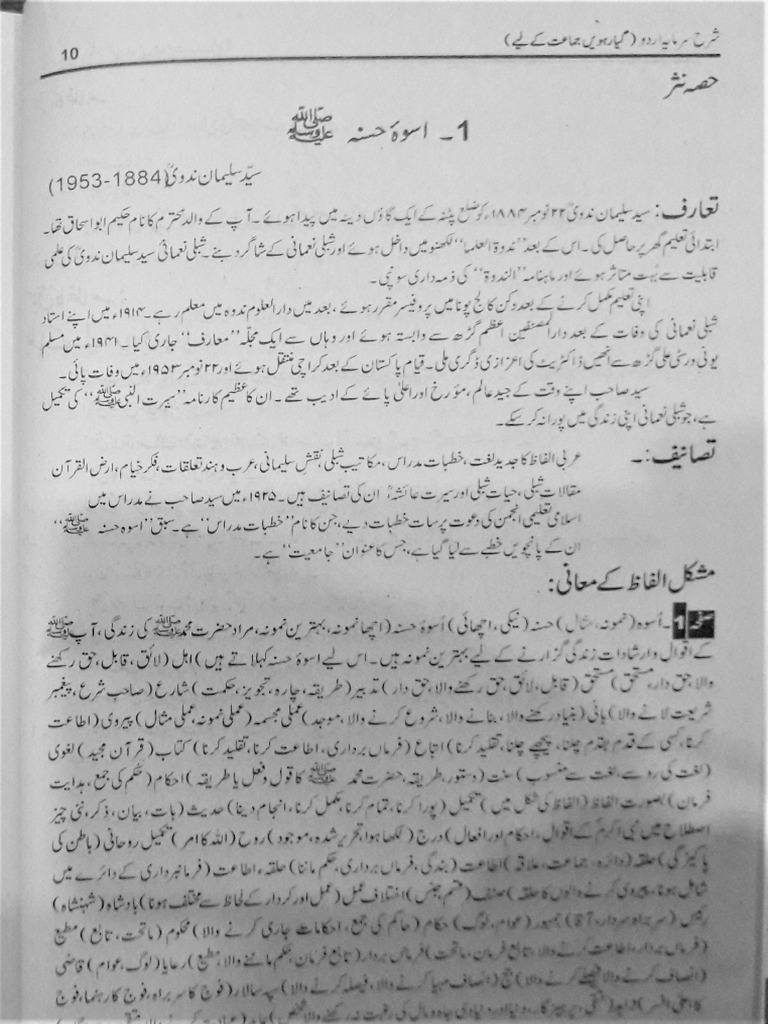 شرح سرمایہ اردو (گیارھویں جماعت کے لیے)
10
حصہ نثر
1۔ اسوۂ حسنہ ﷺ
سیّد سلیمان ندویؒ (1884-1953)
تعارف: سید سلیمان ندویؒ ۲۲ نومبر ۱۸۸۴ء کو ضلع پٹنہ کے ایک گاؤں دینہ میں پیدا ہوئے۔ آپ کے والد محترم کا نام حکیم ابو اسحاق تھا۔
ابتدائی تعلیم گھر پر حاصل کی۔ اس کے بعد ”ندوۃ العلما“ لکھنو میں داخل ہوئے اور شبلی نعمانی کے شاگرد بنے۔ شبلی نعمانیؒ سید سلیمان ندویؒ کی علمی
قابلیت سے بہت متاثر ہوئے اور ماہنامہ ”الندوۃ“ کی ذمہ داری سونپی۔
اپنی تعلیم مکمل کرنے کے بعد دکن کالج پونا میں پروفیسر مقرر ہوئے، بعد میں دارالعلوم ندوہ میں معلم رہے۔ ۱۹۱۴ء میں اپنے استاد
شبلی نعمانی کی وفات کے بعد دارالمصنفین اعظم گڑھ سے وابستہ ہوئے اور وہاں سے ایک مجلّہ ”معارف“ جاری کیا۔ ۱۹۴۱ء میں مسلم
یونی ورسٹی علی گڑھ سے انھیں ڈاکٹریٹ کی اعزازی ڈگری ملی۔ قیام پاکستان کے بعد کراچی منتقل ہوئے اور ۲۲ نومبر ۱۹۵۳ء میں وفات پائی۔
سید صاحب اپنے وقت کے جید عالم، مؤرخ اور اعلیٰ پائے کے ادیب تھے۔ ان کا عظیم کارنامہ ”سیرت النبی ﷺ“ کی تکمیل
ہے، جو شبلی نعمانی اپنی زندگی میں پورا نہ کر سکے۔
تصانیف:۔ عربی الفاظ کا جدید لغت، خطبات مدراس، مکاتیب شبلی، نقش سلیمانی، عرب و ہند تعلقات، فکر خیام، ارض القرآن
مقالات شبلی، حیات شبلی اور سیرت عائشہؓ ان کی تصانیف ہیں۔ ۱۹۲۵ء میں سید صاحب نے مدراس میں
اسلامی تعلیمی انجمن کی دعوت پر سات خطبات دیے، جن کا نام ”خطبات مدراس“ ہے۔ سبق ”اسوہ حسنہ ﷺ“
ان کے پانچویں خطبے سے لیا گیا ہے، جس کا عنوان ”جامعیت“ ہے۔
مشکل الفاظ کے معانی:
صفحہ 1 ۔ اُسوہ (نمونہ، مثال) حسنہ (نیکی، اچھائی) اُسوۂ حسنہ (اچھا نمونہ، بہترین نمونہ، مراد حضرت محمد ﷺ کی زندگی، آپ ﷺ
کے اقوال و ارشادات زندگی گزارنے کے لیے بہترین نمونہ ہیں۔ اس لیے اسوۂ حسنہ کہلاتے ہیں) اہل (لائق، قابل، حق رکھنے
والا، حق دار، مستحق) مستحق (قابل، لائق، حق رکھنے والا، حق دار) تدبیر (طریقہ، چارہ، تجویز، حکمت) شارع (صاحبِ شرع، پیغمبر
شریعت لانے والا) بانی (بنیاد رکھنے والا، بنانے والا، شروع کرنے والا، موجد) عملی مجسمہ (عملی نمونہ، عملی مثال) پیروی (اطاعت
کرنا، کسی کے قدم بقدم چلنا، پیچھے چلنا، تقلید کرنا) اتباع (فرماں برداری، اطاعت کرنا، تقلید کرنا) کتاب (قرآن مجید) لغوی
(لغت کی رو سے، لغت سے منسوب) سنت (دستور، طریقہ، حضرت محمد ﷺ کا قول و فعل یا طریقہ) احکام (حکم کی جمع، ہدایت
فرمان) بصورت الفاظ (الفاظ کی شکل میں) تکمیل (پورا کرنا، تمام کرنا، مکمل کرنا، انجام دینا) حدیث (بات، بیان، ذکر، نئی چیز
اصطلاح میں نبی اکرمؐ کے اقوال، احکام اور افعال) درج (لکھا ہوا، تحریر شدہ، موجود) روح (اللہ کا امر) تکمیل روحانی (باطن کی
پاکیزگی) حلقہ (دائرہ، جماعت، علاقہ) اطاعت (بندگی، فرماں برداری، حکم ماننا) حلقہء اطاعت (فرمانبرداری کے دائرے میں
شامل ہونا، پیروی کرنے والوں کا حلقہ) صنف (قسم، جنس) اختلاف عمل (عمل اور کردار کے لحاظ سے مختلف ہونا) بادشاہ (شہنشاہ)
رئیس (سربراہ، سردار، آقا) جمہور (عوام، لوگ) حکام (حاکم کی جمع، احکامات جاری کرنے والا) محکوم (ماتحت، تابع) مطیع
(فرماں بردار، اطاعت کرنے والا، تابع فرمان، ماتحت) فرماں بردار (تابع فرمان، حکم ماننے والا، مطیع) رعایا (لوگ، عوام) قاضی
(انصاف کرنے والا، فیصلے کرنے والا) جج (انصاف مہیا کرنے والا، فیصلہ کرنے والا) سپہ سالار (فوج کا سربراہ، فوج کا رہنما، فوج
کا اعلیٰ افسر) زاہد (متقی، پرہیز گار، دنیا اور دنیاوی جاہ و مال کی رغبت نہ رکھنے والا شخص)